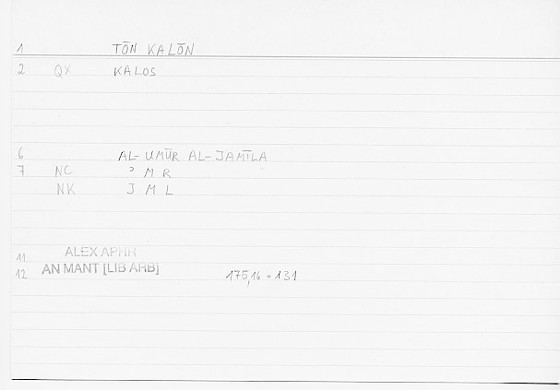 1 TŌN KALŌN
2 QX KALOS
6 AL-UMŪR AL-JAMĪLA
7 NC ʾ M R
NK J M L
11 ALEX APHR
12 AN MANT [LIB ARB] 175,16 = 131